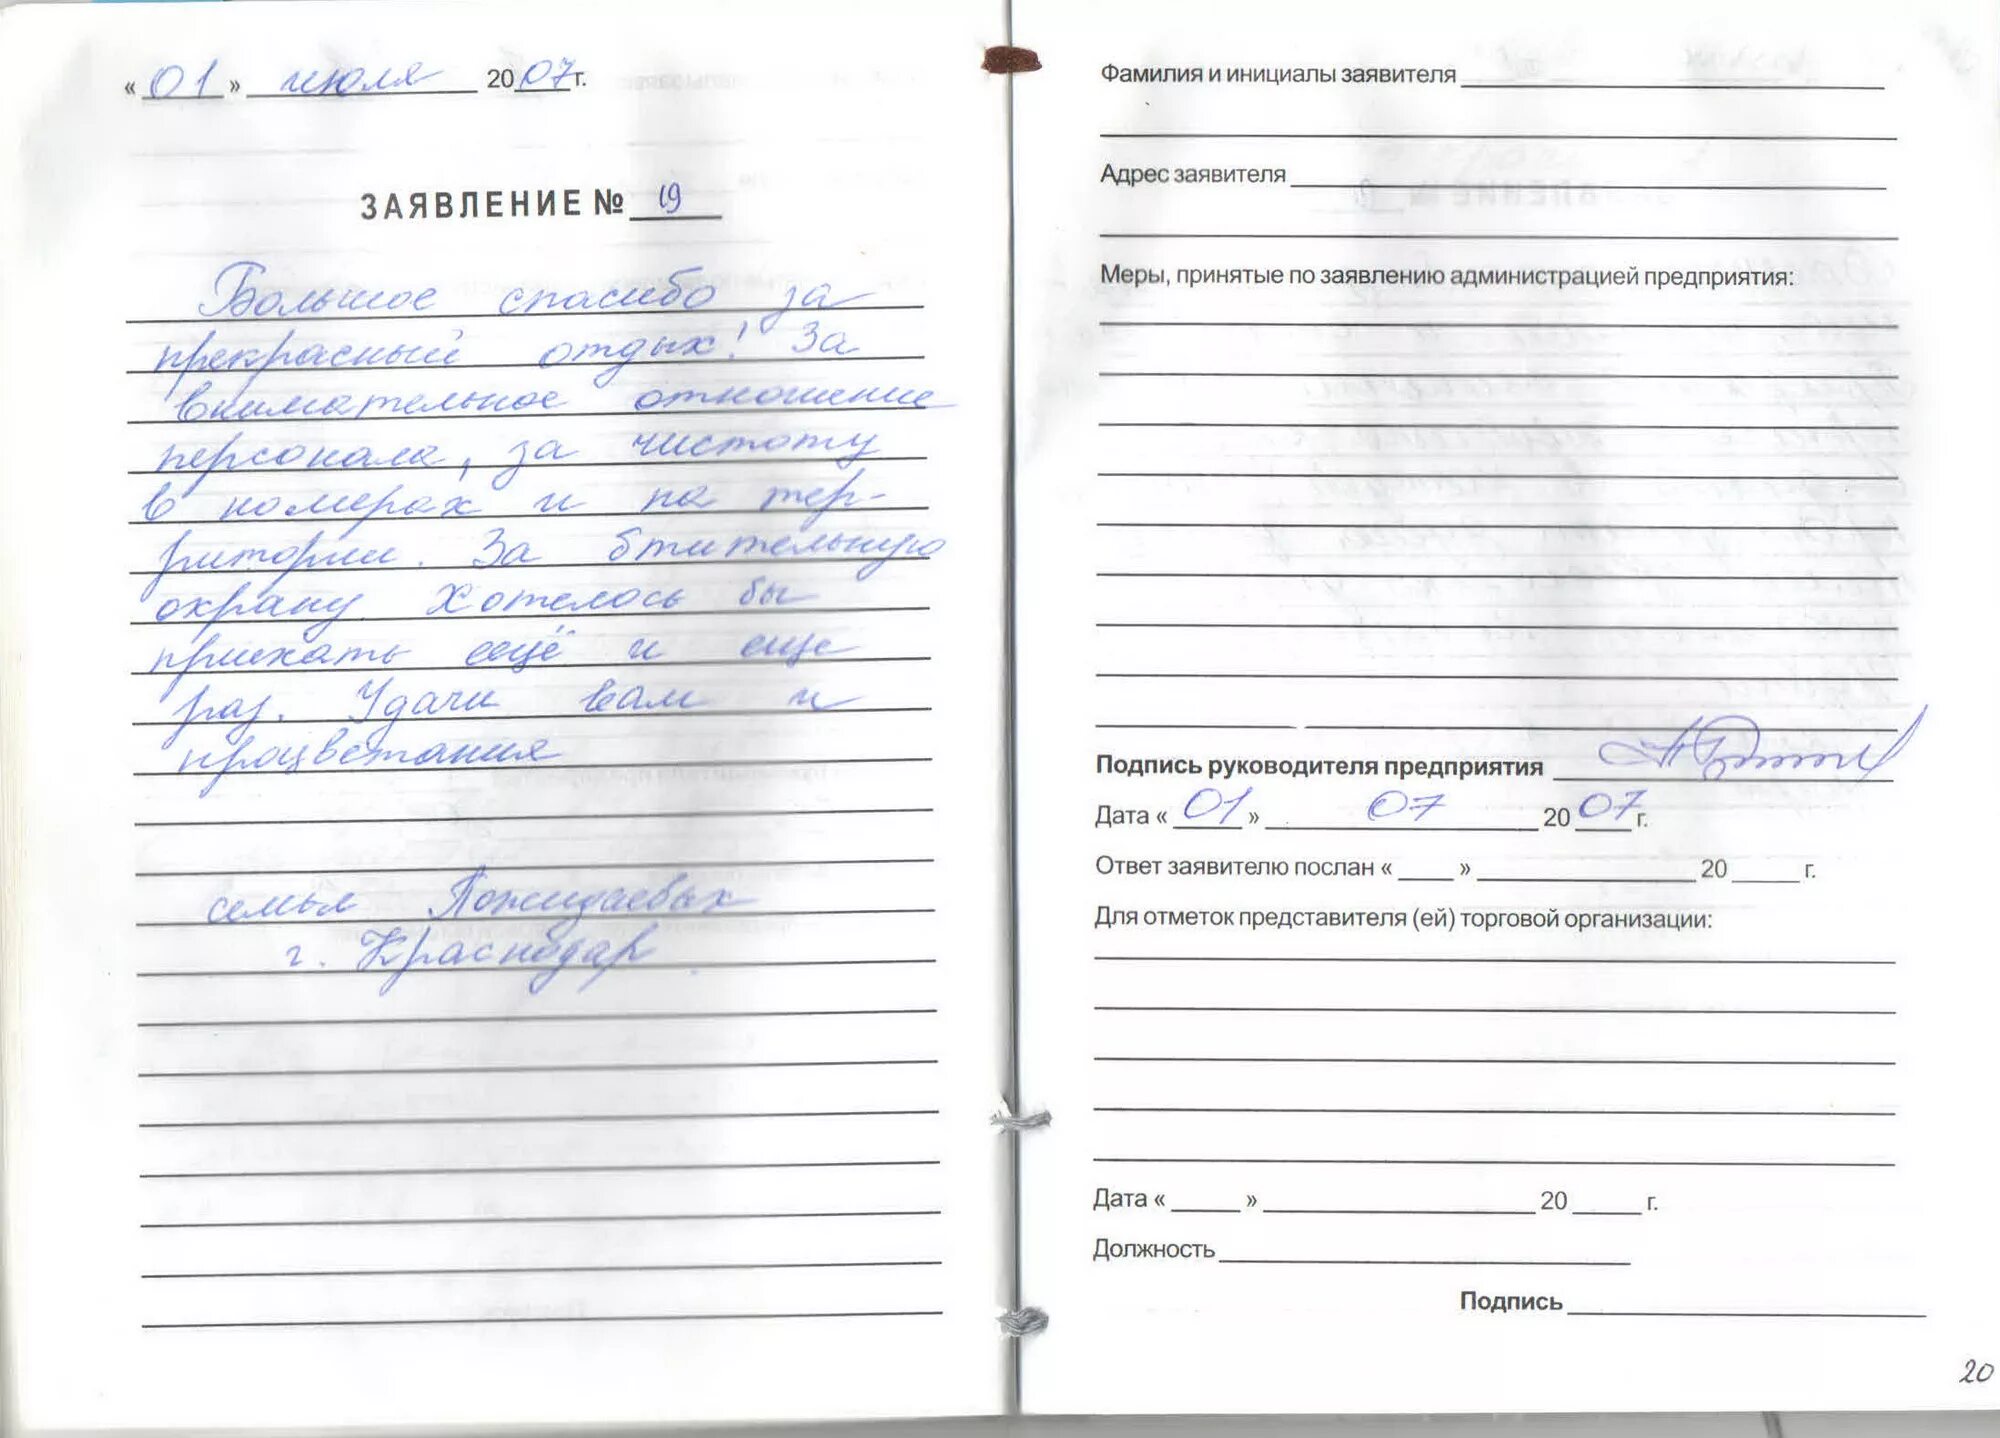 « 01 » июля 2007 г.
ЗАЯВЛЕНИЕ № 19
Большое спасибо за
прекрасный отдых! За
внимательное отношение
персонала, за чистоту
в номерах и на тер-
ритории. За бтительную
охрану. Хотелось бы
приехать ещё и еще
раз. Удачи вам и
процветания
семья Пожидаевых
г. Краснодар
Фамилия и инициалы заявителя
Адрес заявителя
Меры, принятые по заявлению администрацией предприятия:
Подпись руководителя предприятия
Дата « 01 » 07 2007 г.
Ответ заявителю послан « » 20 г.
Для отметок представителя (ей) торговой организации:
Дата « » 20 г.
Должность
Подпись
20